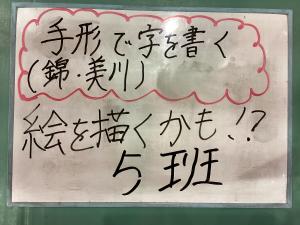 手形で字を書く
(錦・美川)
絵を描くかも!?
5班